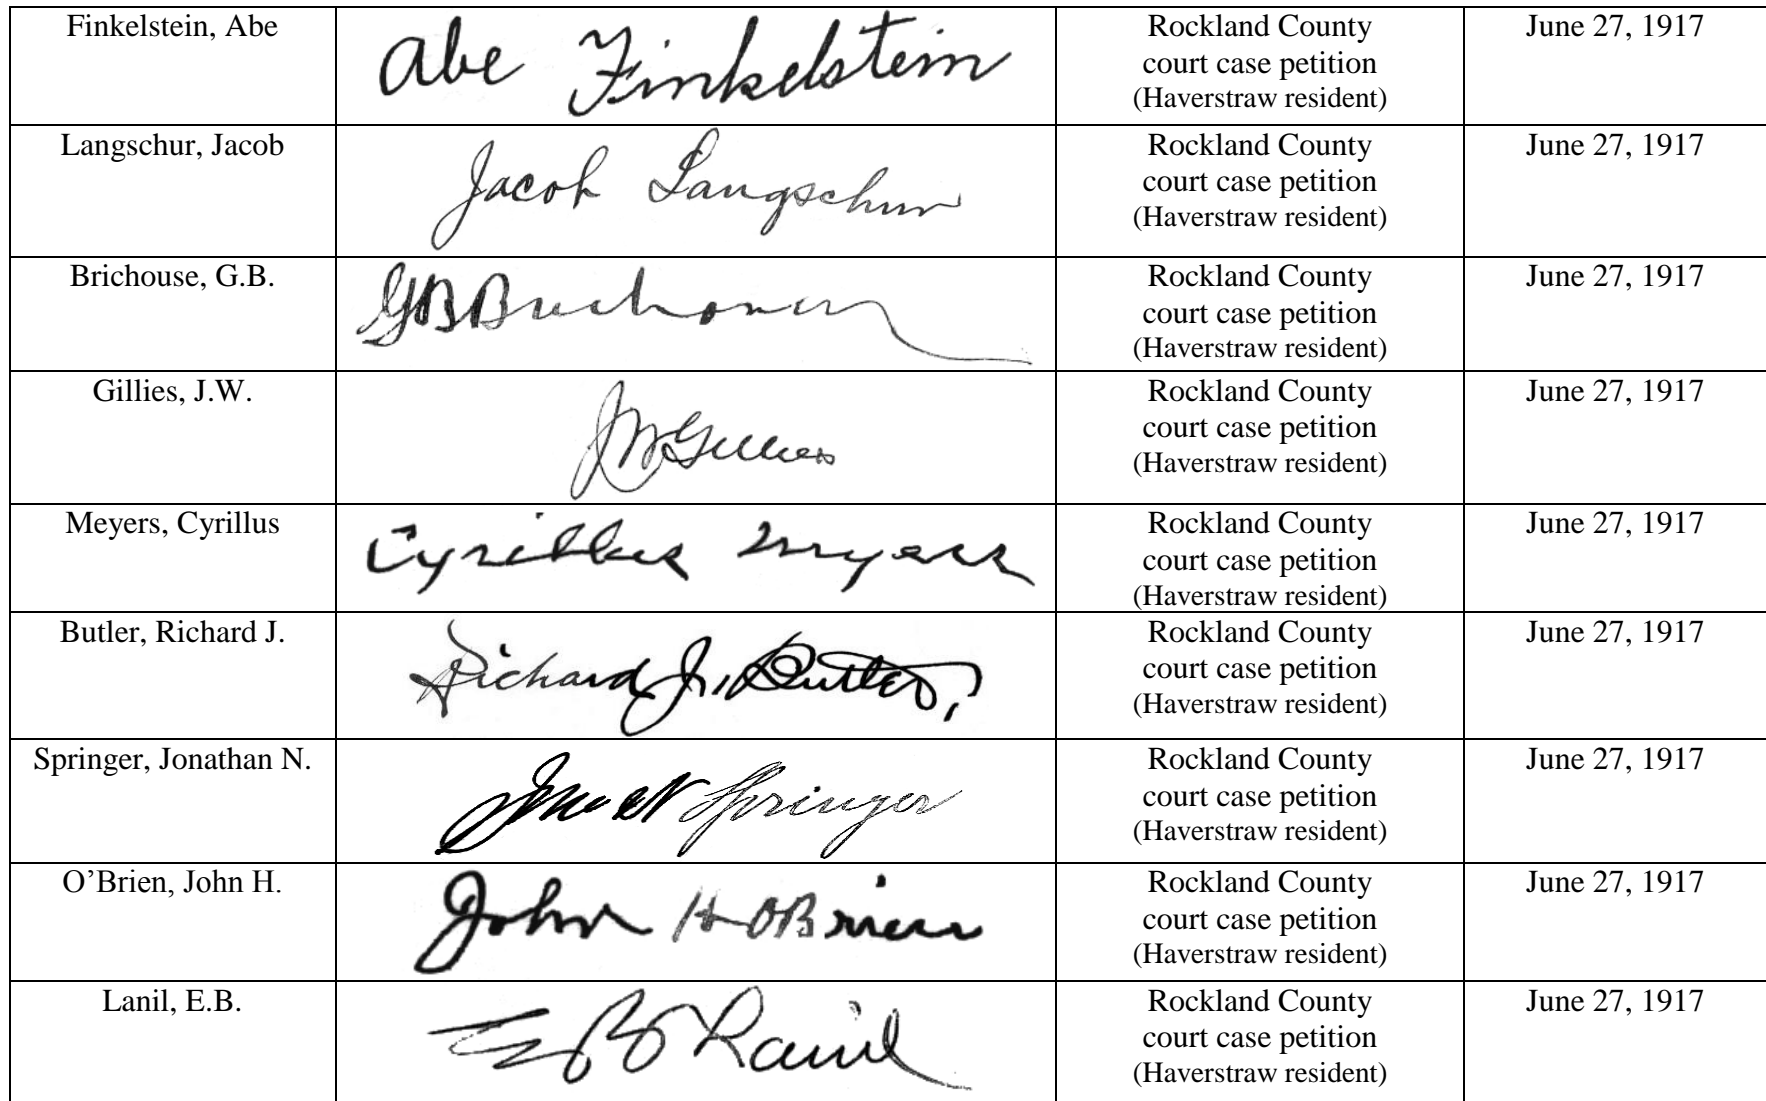 Finkelstein, Abe
Abe Finkelstein
Rockland County
court case petition
(Haverstraw resident)
June 27, 1917
Langschur, Jacob
Jacob Langschur
Rockland County
court case petition
(Haverstraw resident)
June 27, 1917
Brichouse, G.B.
GB
Rockland County
court case petition
(Haverstraw resident)
June 27, 1917
Gillies, J.W.
JW Gillies
Rockland County
court case petition
(Haverstraw resident)
June 27, 1917
Meyers, Cyrillus
Cyrillus Myers
Rockland County
court case petition
(Haverstraw resident)
June 27, 1917
Butler, Richard J.
Richard J. Butler
Rockland County
court case petition
(Haverstraw resident)
June 27, 1917
Springer, Jonathan N.
N Springer
Rockland County
court case petition
(Haverstraw resident)
June 27, 1917
O’Brien, John H.
John H OBrien
Rockland County
court case petition
(Haverstraw resident)
June 27, 1917
Lanil, E.B.
EB
Rockland County
court case petition
(Haverstraw resident)
June 27, 1917